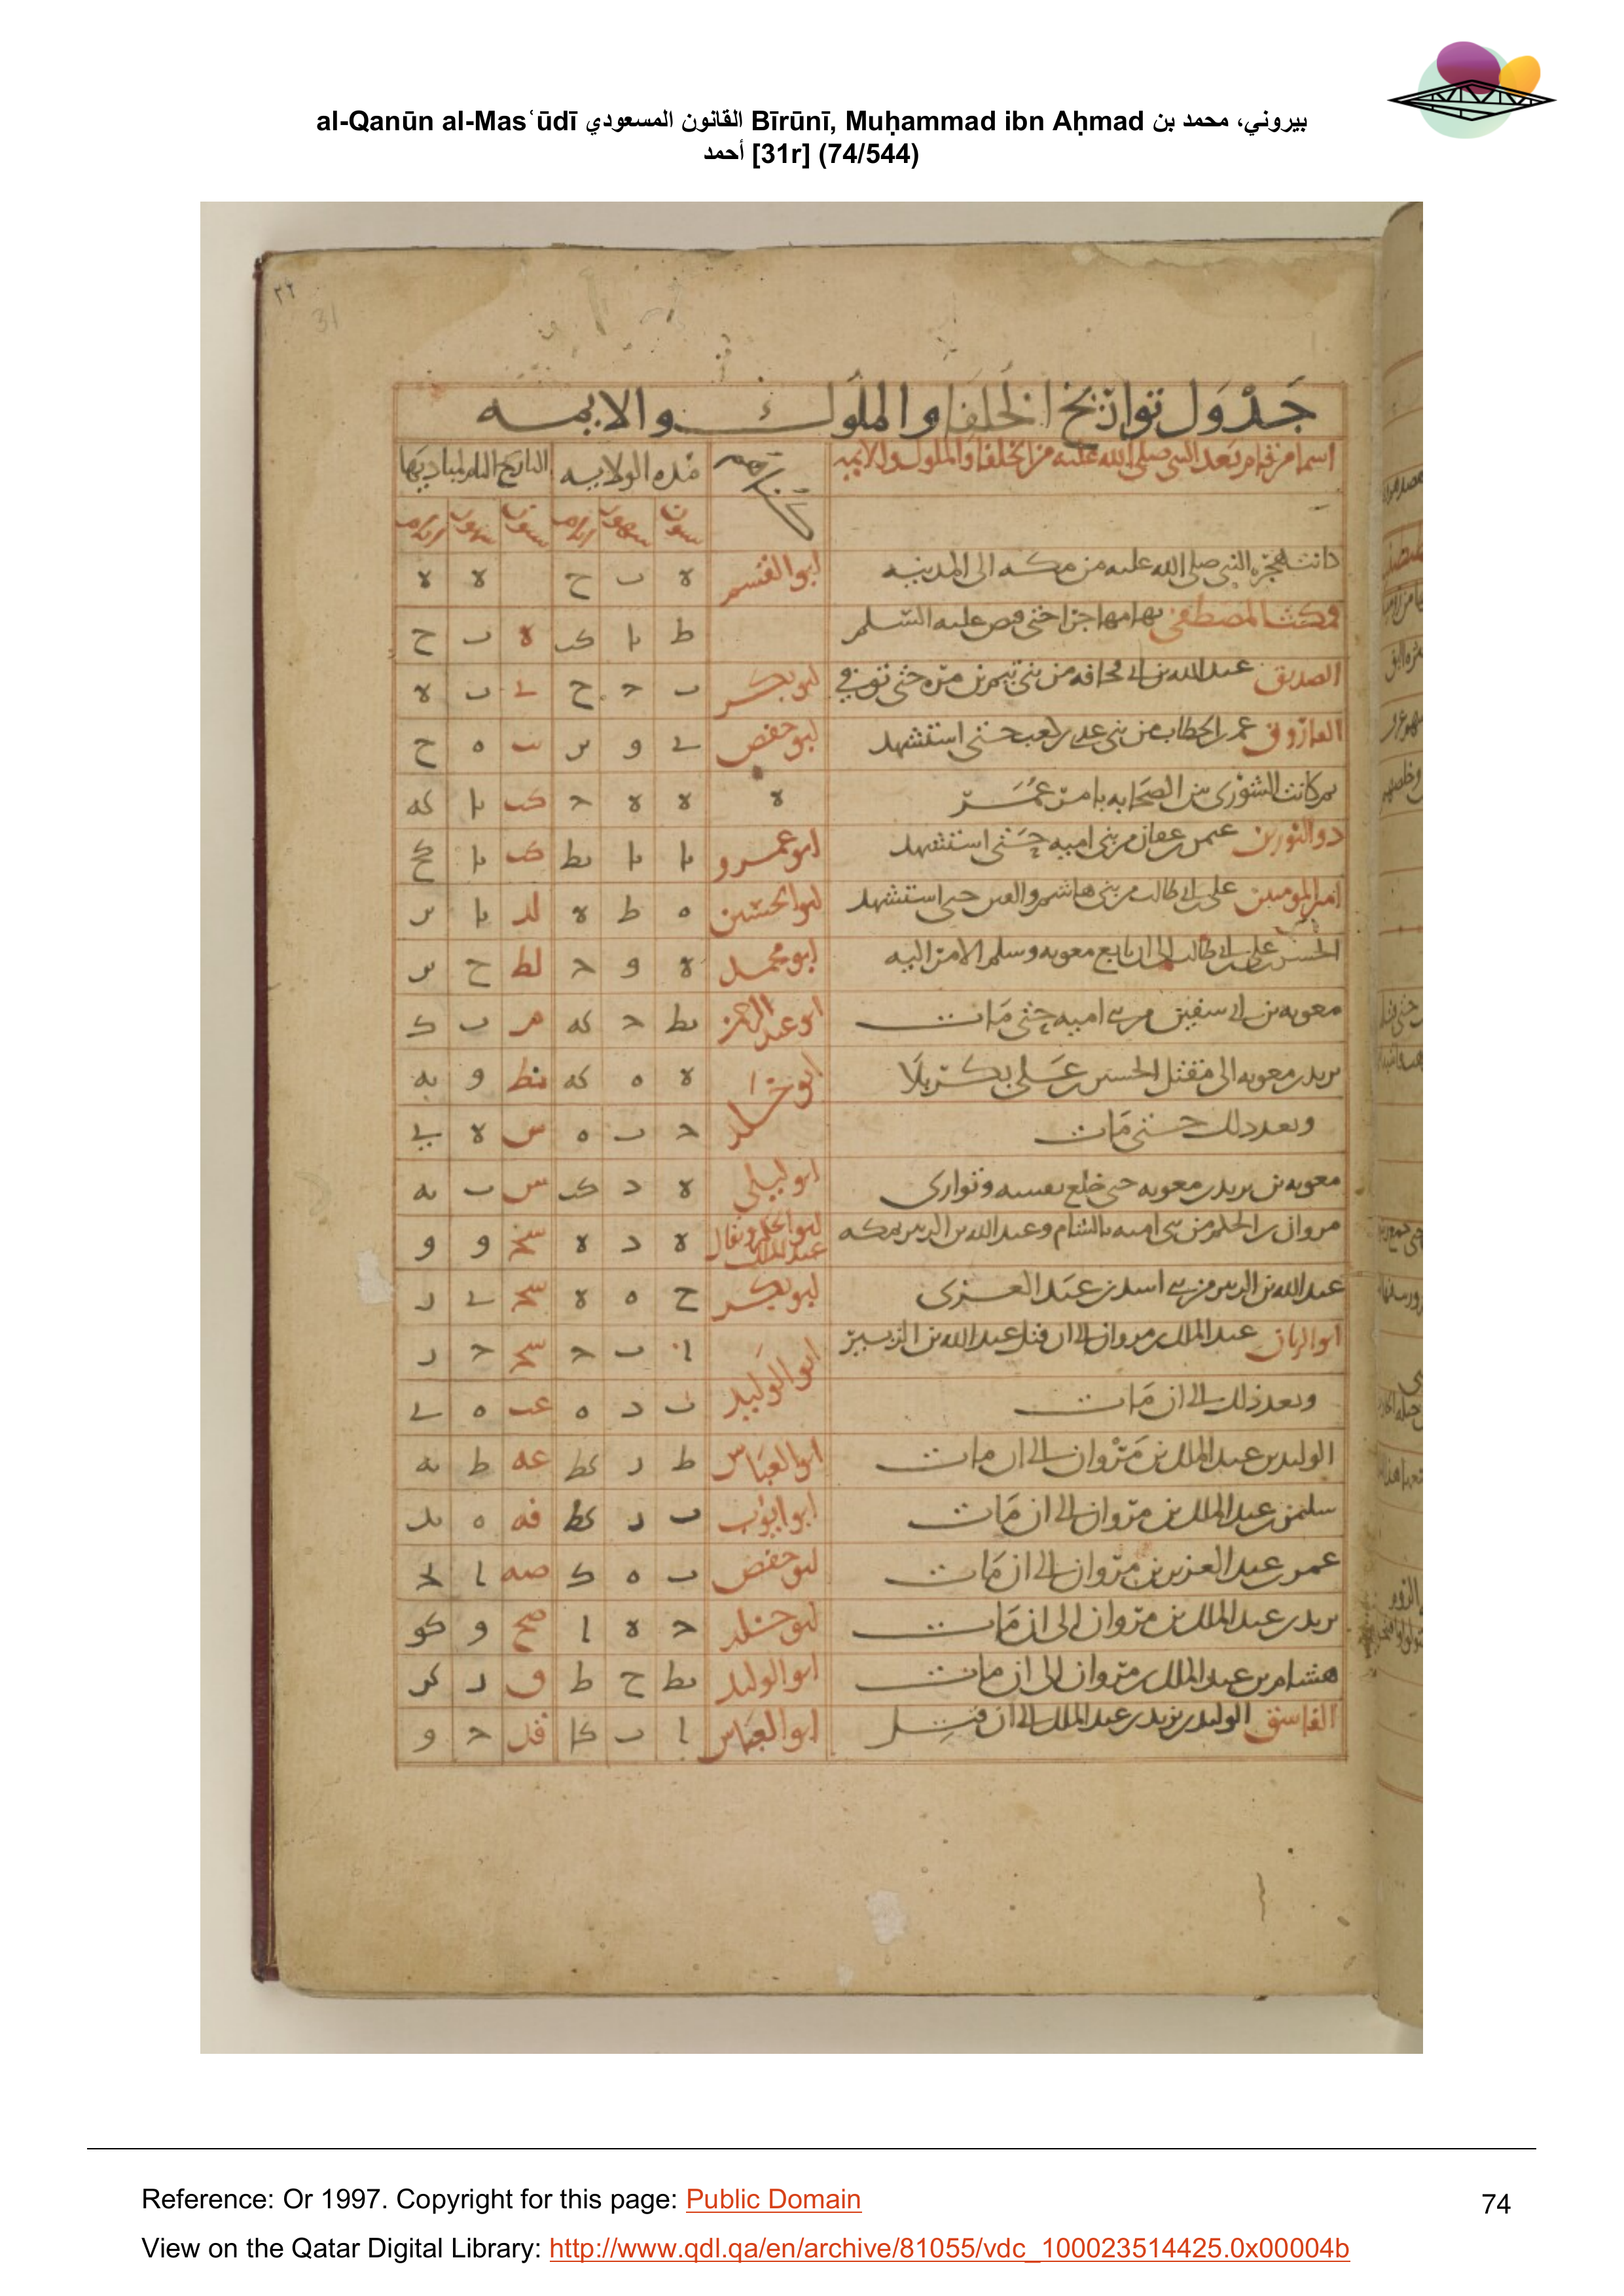 al-Qanūn al-Masʿūdī القانون المسعودي Bīrūnī, Muḥammad ibn Aḥmad بيروني، محمد بن
أحمد [31r] (74/544)
٣٢
31
جدول تواريخ الخلفا والملوك والايمه
اسما من قام بعد النبي صلى الله عليه من الخلفا والملوك والايمه كناهم مده الولايه التاريخ التام لمباديها
سنون شهور ايام سنون شهور ايام
كانت هجره النبي صلى الله عليه من مكه الى المدينه ابو القسم ه ب ح ه ه
فمكث المصطفى بها مهاجرا حتى قبض عليه السلم ط يا كب ه ب ح
الصديق عبد الله بن ابي قحافه من بني تيم بن مره حتى توفي ابو بكر ب ح ح ي ب ه
الفاروق عمر بن الخطاب من بني عدي بن كعب حتى استشهد ابو حفص ي و يز يب ه ح
ثم كانت الشورى بين الصحابه بامر عمر ه ه ه ح كب يا كه
ذو النورين عثمن بن عفان من بني اميه حتى استشهد ابو عمرو يا يا يط كب يا كح
امير المومنين علي بن ابي طالب من بني هاشم حتى استشهد ابو الحسين ه ط ه لد يا يز
الحسن بن علي بن ابي طالب الى ان بايع معويه وسلم الامر اليه ابو محمد ه و ح لط ح يز
معويه بن ابي سفين من بني اميه حتى مات ابو عبد الرحمن يط ح كه م ب ك
يزيد بن معويه الى مقتل الحسين بن علي بكربلا ابو خلد ه ه كه نط و يه
وبعد ذلك حتى مات ح ب ه س ه ي
معويه بن يزيد بن معويه حتى خلع نفسه وتوارى ابو ليلى ه د كب س ب يه
مروان بن الحكم من بني اميه بالشام وعبد الله بن الزبير بمكه ابو الحكم ويقال عبد الملك ه د ه سح و و
عبد الله بن الزبير من بني اسد بن عبد العزى ابو بكر ح ه ه سح ي د
ابو الذبان عبد الملك بن مروان الى ان قتل عبد الله بن الزبير ابو الوليد ا ب ح سح ح د
وبعد ذلك الى ان مات يب د ه عب ه ي
الوليد بن عبد الملك بن مروان الى ان مات ابو العباس ط د كط عه ط يه
سليمن بن عبد الملك بن مروان الى ان مات ابو ايوب ب د كط فه ه يد
عمر بن عبد العزيز بن مروان الى ان مات ابو حفص ب ه ك صه ا
يزيد بن عبد الملك بن مروان الى ان مات ابو خلد ح ه ا صح و كو
هشام بن عبد الملك بن مروان الى ان مات ابو الوليد يط ح ط ق د كز
الفاسق الوليد بن يزيد بن عبد الملك الى ان قتل ابو العباس ا ب كا قك ح و
Reference: Or 1997. Copyright for this page: Public Domain
74
View on the Qatar Digital Library: http://www.qdl.qa/en/archive/81055/vdc_100023514425.0x00004b